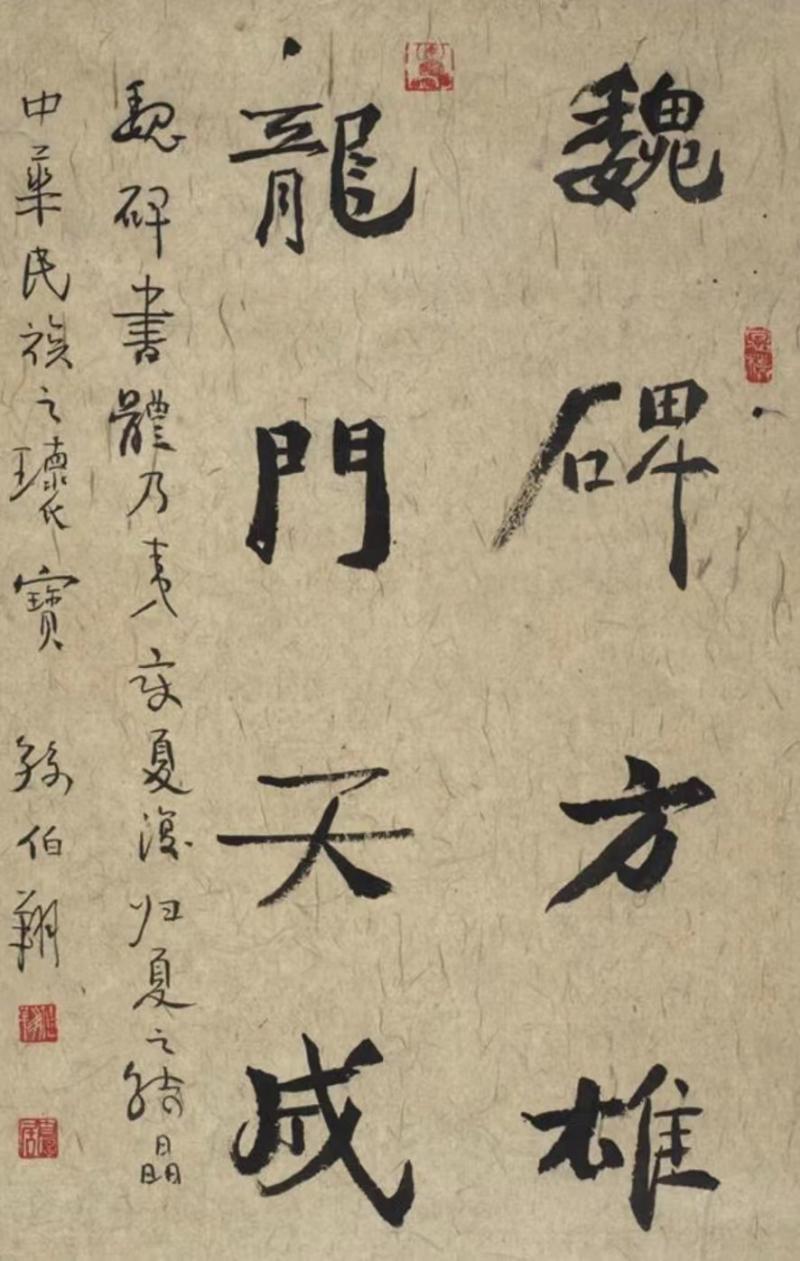 魏碑方雄
龍門天成
魏碑書體乃夷变夏後归夏之結晶
中華民族之瓌寶 孫伯翔